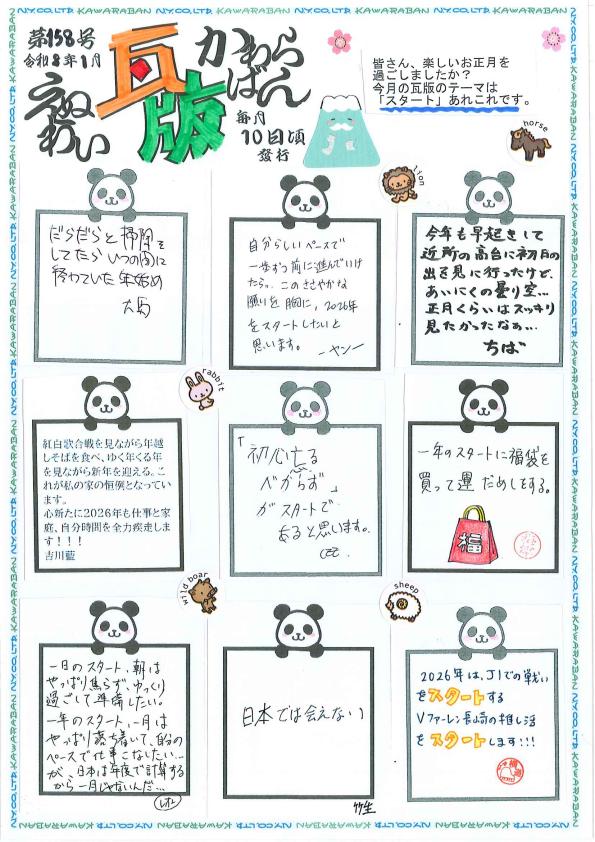 第158号
令和8年1月
瓦版
かわらばん
えぬわい
毎月
10日頃
発行
皆さん、楽しいお正月を
過ごしましたか？
今月の瓦版のテーマは
「スタート」あれこれです。
horse
lion
だらだらと掃除を
してたらいつの間に
終わっていた年始め
大馬
自分らしいペースで
一歩ずつ前に進んでいけ
たらな。このささやかな
願いを胸に、2026年
をスタートしたいと
思います。
ーヤンー
今年も早起きして
近所の高台に初日の
出を見に行ったけど、
あいにくの曇り空…
正月くらいはスッキリ
見たかったなぁ…
ちば
rabbit
紅白歌合戦を見ながら年越
しそばを食べ、ゆく年くる年
を見ながら新年を迎える。こ
れが私の家の恒例となってい
ます。
心新たに2026年も仕事と家
庭、自分時間を全力疾走しま
す！！！
吉川藍
「初心忘る
べからず」
がスタートで
あると思います。
一年のスタートに福袋を
買って運だめしをする。
福
wild boar
sheep
一日のスタート、朝は
やっぱり焦らず、ゆっくり
過ごして準備したい。
一年のスタート、一月は
やっぱり落ち着いて、自分の
ペースで仕事こなしたい…
が、日本は年度で計算する
から一月じゃないんだ…
日本では会えない
竹生
2026年は、J1での戦い
をスタートする
Vファーレン長崎の推し活
をスタートします!!!
N.Y.CO.,LTD. KAWARABAN